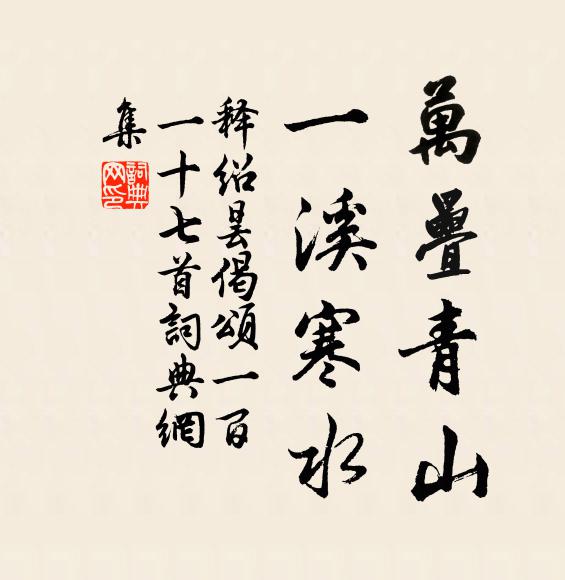 萬疊青山
一溪寒水
释绍昙偈頌一百
一十七首詞典網
集
詞典
网印